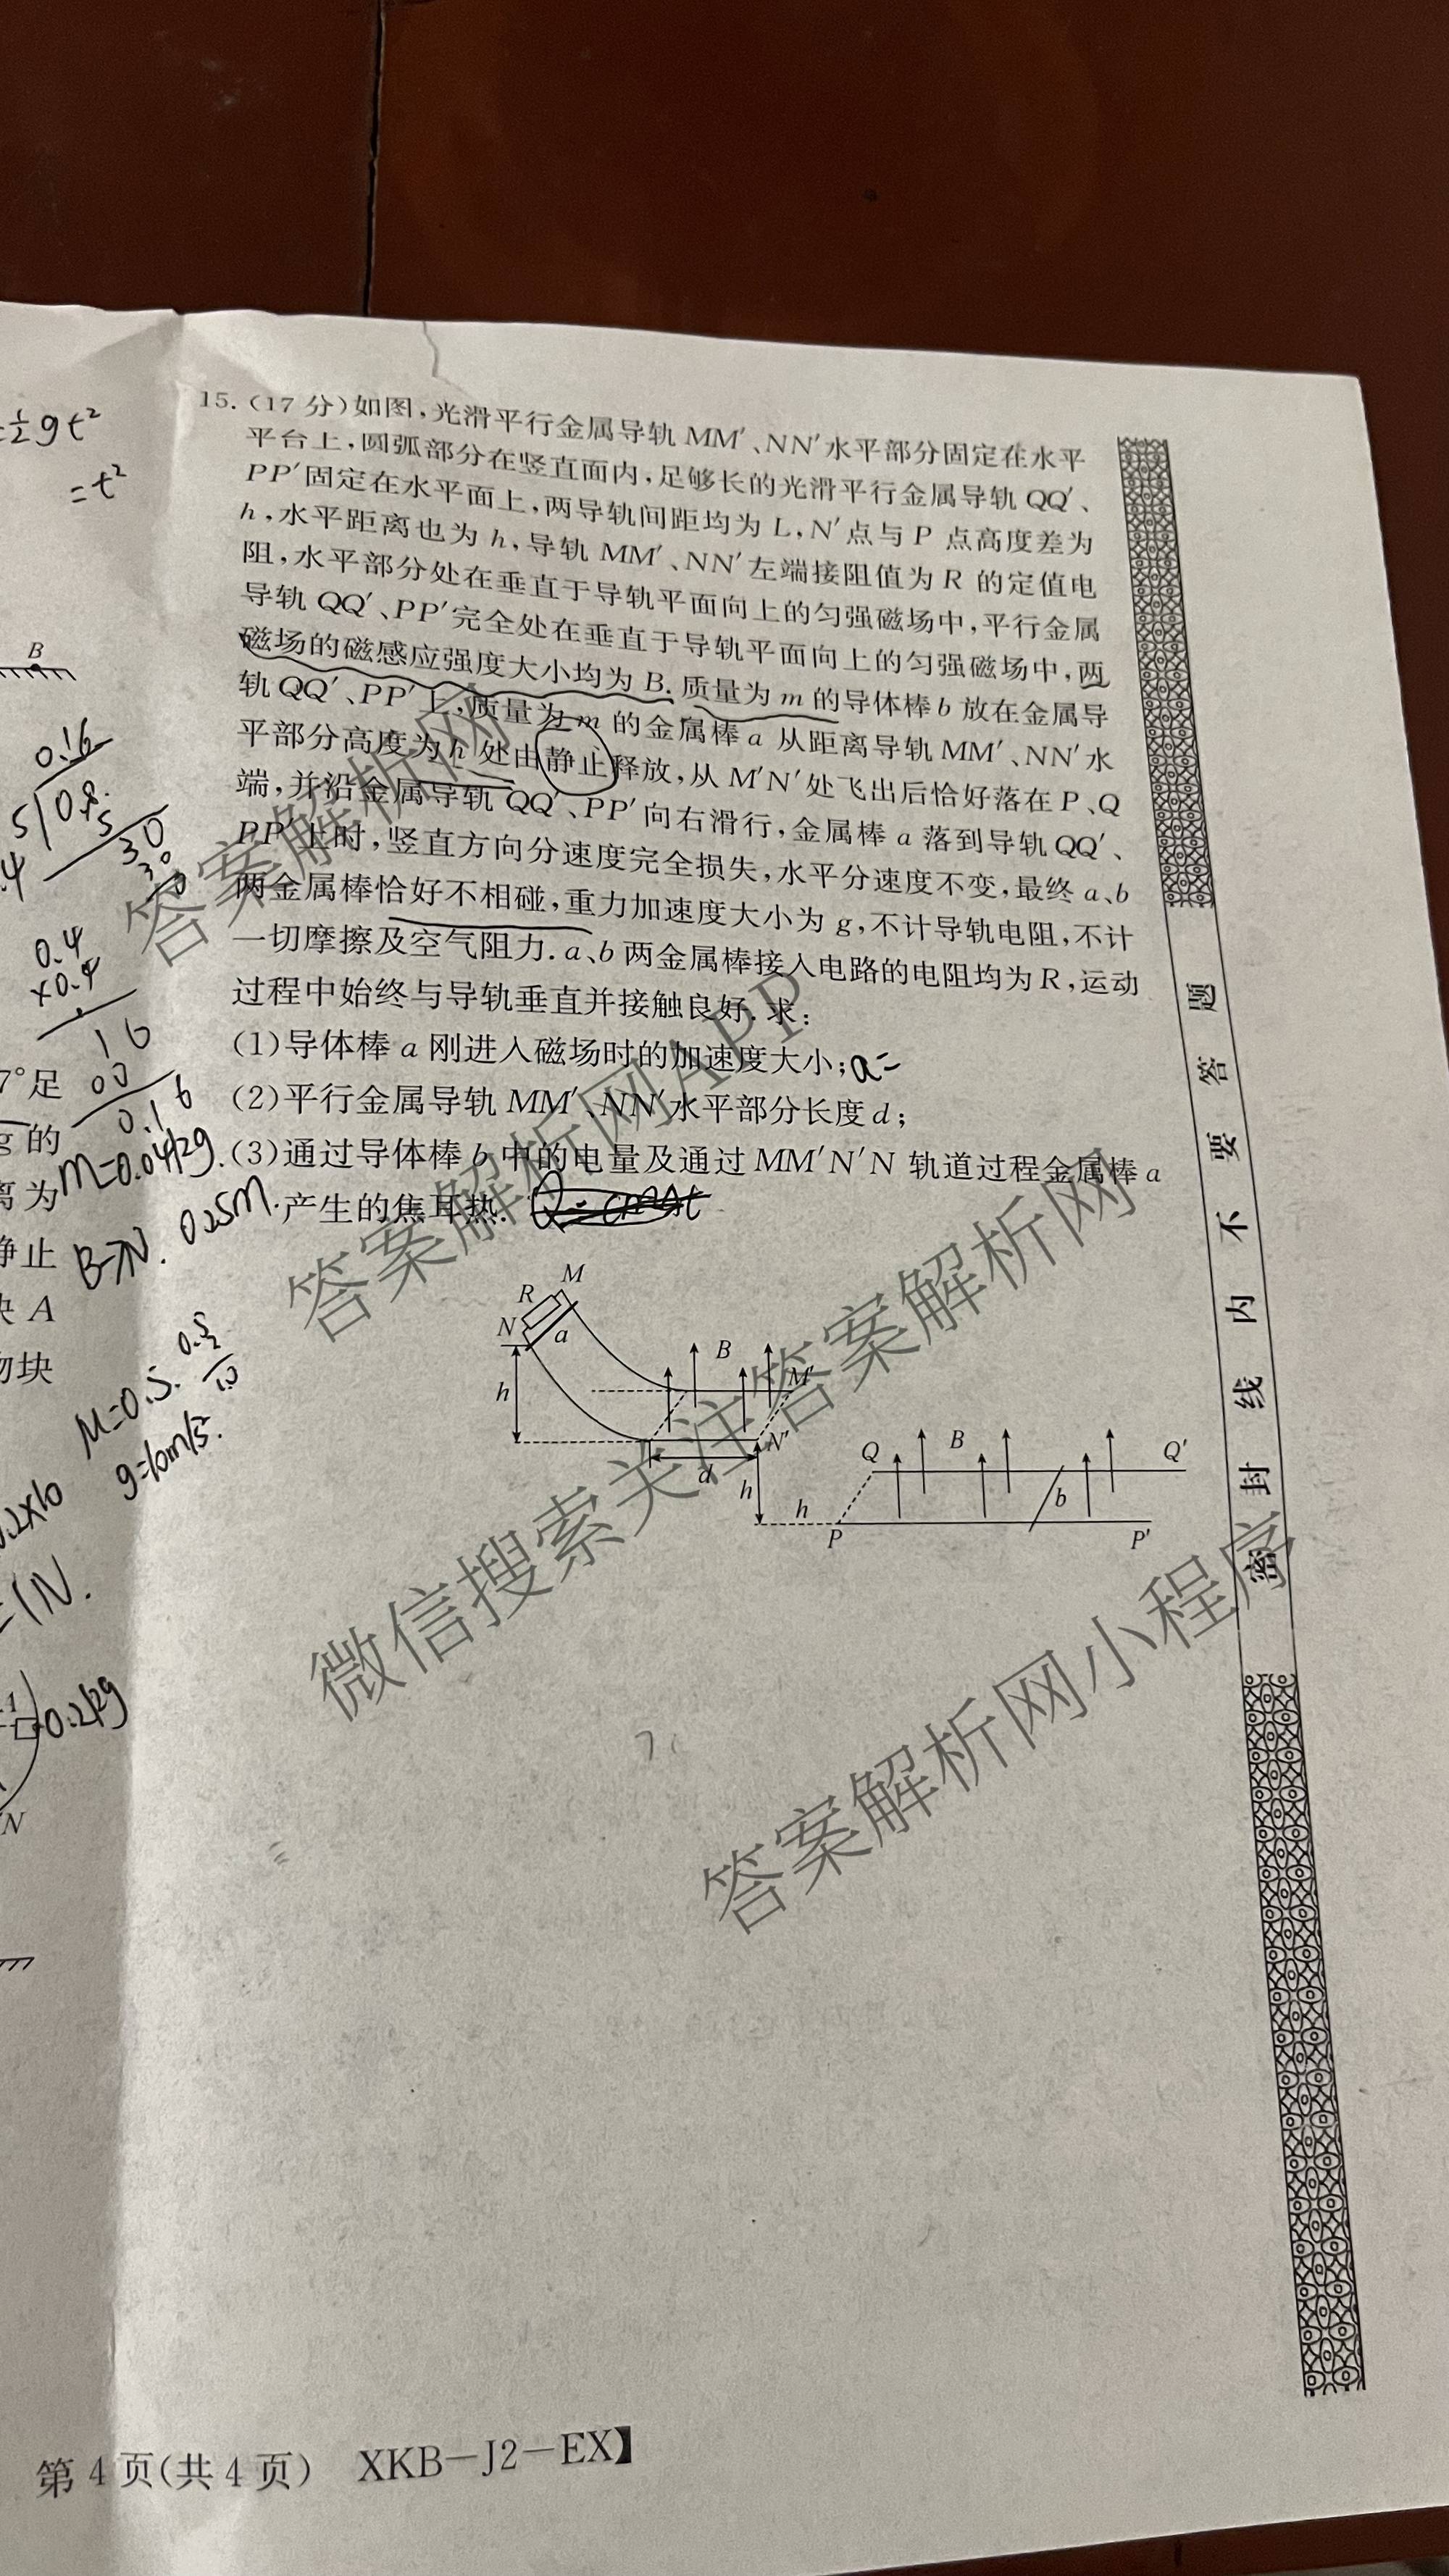 =½gt²
=t²
15.(17分)如图,光滑平行金属导轨MM′、NN′水平部分固定在水平
平台上,圆弧部分在竖直面内,足够长的光滑平行金属导轨QQ′、
PP′固定在水平面上,两导轨间距均为L,N′点与P点高度差为
h,水平距离也为h,导轨MM′、NN′左端接阻值为R的定值电
阻,水平部分处在垂直于导轨平面向上的匀强磁场中,平行金属
导轨QQ′、PP′完全处在垂直于导轨平面向上的匀强磁场中,两
磁场的磁感应强度大小均为B.质量为m的导体棒b放在金属导
轨QQ′、PP′上,质量为m的金属棒a从距离导轨MM′、NN′水
平部分高度为h处由静止释放,从M′N′处飞出后恰好落在P、Q
端,并沿金属导轨QQ′、PP′向右滑行,金属棒a落到导轨QQ′、
PP′上时,竖直方向分速度完全损失,水平分速度不变,最终a、b
两金属棒恰好不相碰,重力加速度大小为g,不计导轨电阻,不计
一切摩擦及空气阻力.a、b两金属棒接入电路的电阻均为R,运动
过程中始终与导轨垂直并接触良好.求:
(1)导体棒a刚进入磁场时的加速度大小;a=
(2)平行金属导轨MM′、NN′水平部分长度d;
(3)通过导体棒b中的电量及通过MM′N′N轨道过程金属棒a
产生的焦耳热.
B
0.16
0.4
×0.4
16
00
0.16
7°足
g的
m=0.04kg.
离为
0.25m.
静止
块A
物块
M=0.5.
g=10m/s².
0.2×10
=1N.
0.2kg
N
R
M
N
a
h
B
M′
N′
d
h
h
Q
B
Q′
b
P
P′
密封线内不要答题
答案解析网
答案解析网APP
微信搜索关注答案解析网
答案解析网小程序
第4页(共4页) XKB-J2-EX】